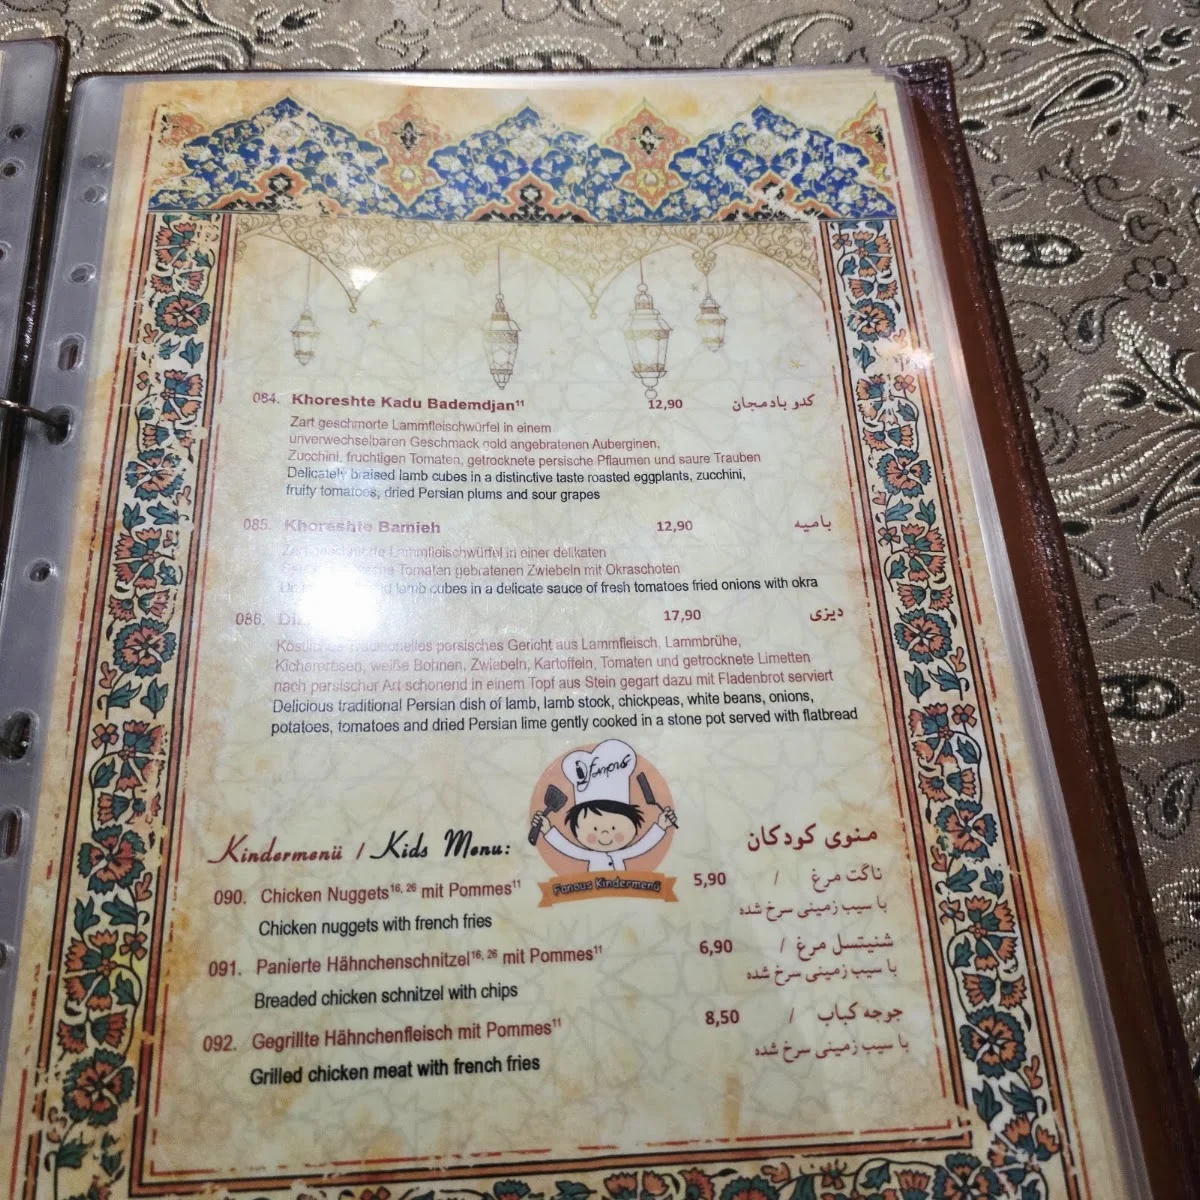 084. Khoreshte Kadu Bademdjan¹¹ 12,90 کدو بادمجان
Zart geschmorte Lammfleischwürfel in einem
unverwechselbaren Geschmack gold angebratenen Auberginen,
Zucchini, fruchtigen Tomaten, getrocknete persische Pflaumen und saure Trauben
Delicately braised lamb cubes in a distinctive taste roasted eggplants, zucchini,
fruity tomatoes, dried Persian plums and sour grapes
085. Khoreshte Bamieh 12,90 بامیه
Zart geschmorte Lammfleischwürfel in einer delikaten
Tomaten gebratenen Zwiebeln mit Okraschoten
lamb cubes in a delicate sauce of fresh tomatoes fried onions with okra
086. 17,90 دیزی
Traditionelles persisches Gericht aus Lammfleisch, Lammbrühe,
Kichererbsen, weiße Bohnen, Zwiebeln, Kartoffeln, Tomaten und getrocknete Limetten
nach persischer Art schonend in einem Topf aus Stein gegart dazu mit Fladenbrot serviert
Delicious traditional Persian dish of lamb, lamb stock, chickpeas, white beans, onions,
potatoes, tomatoes and dried Persian lime gently cooked in a stone pot served with flatbread
fanous
Kindermenü / Kids Menu: منوی کودکان
Fanous Kindermenü
090. Chicken Nuggets¹⁶, ²⁶ mit Pommes¹¹ 5,90 / ناگت مرغ
Chicken nuggets with french fries با سیب زمینی سرخ شده
091. Panierte Hähnchenschnitzel¹⁶, ²⁶ mit Pommes¹¹ 6,90 / شنیتسل مرغ
Breaded chicken schnitzel with chips با سیب زمینی سرخ شده
092. Gegrillte Hähnchenfleisch mit Pommes¹¹ 8,50 / جوجه کباب
Grilled chicken meat with french fries با سیب زمینی سرخ شده